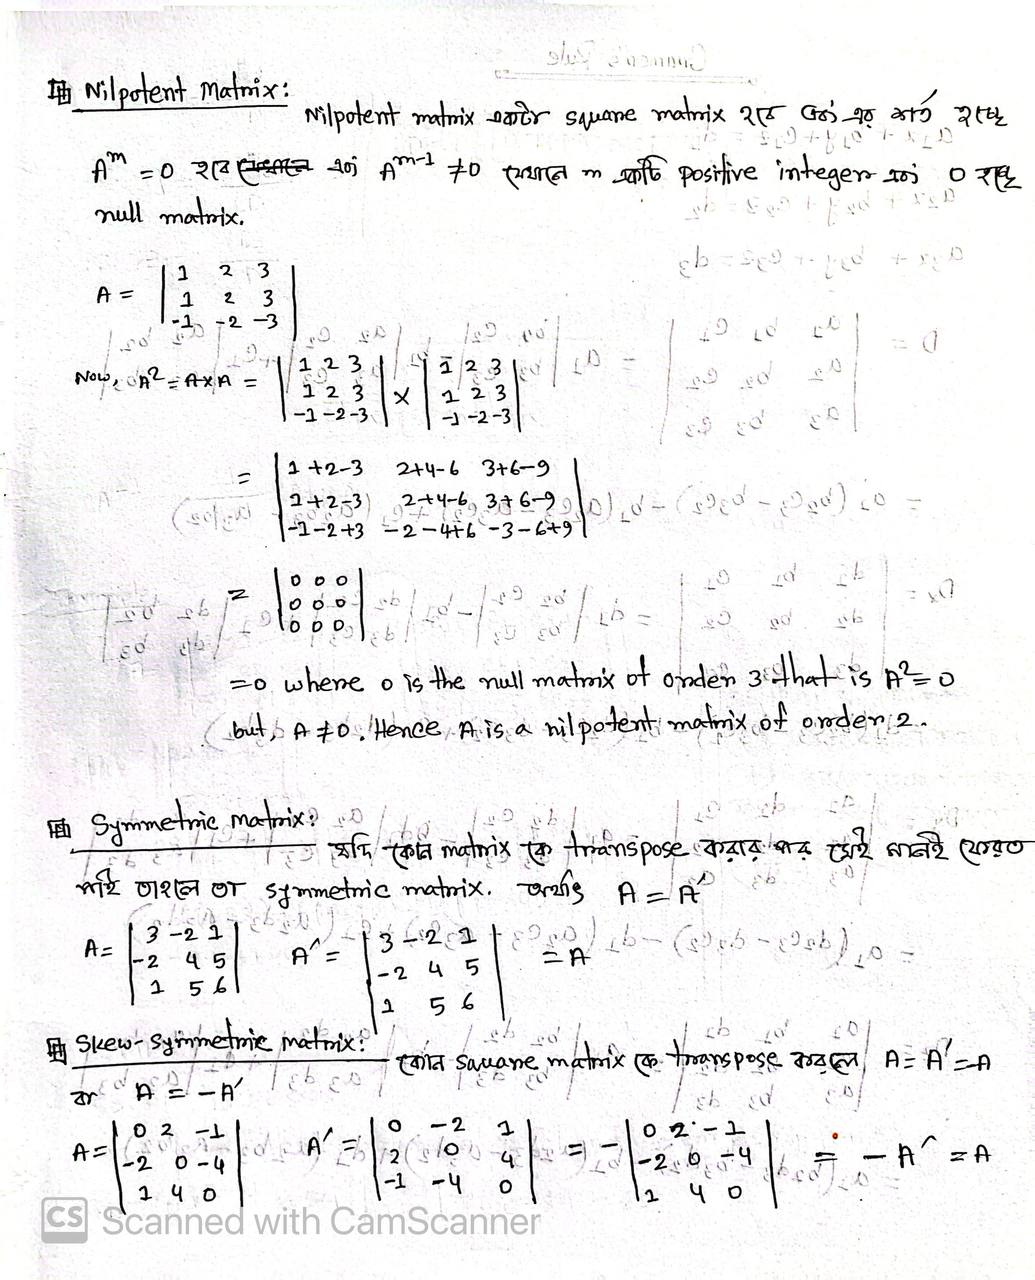 Nilpotent Matrix:
Nilpotent matrix একটি square matrix হবে এবং এর শর্ত হচ্ছে
A^m = 0 হবে এবং A^m-1 ≠0 যেখানে m একটি positive integer এবং 0 হচ্ছে
null matrix.
A = | 1 2 3 |
| 1 2 3 |
| -1 -2 -3 |
Now, A² = A×A = | 1 2 3 | × | 1 2 3 |
| 1 2 3 | | 1 2 3 |
| -1 -2 -3 | | -1 -2 -3 |
= | 1+2-3 2+4-6 3+6-9 |
| 1+2-3 2+4-6 3+6-9 |
| -1-2+3 -2-4+6 -3-6+9 |
= | 0 0 0 |
| 0 0 0 |
| 0 0 0 |
=0 where 0 is the null matrix of order 3 that is A²=0
but, A ≠0. Hence A is a nilpotent matrix of order 2.
Symmetric matrix:
যদি কোন matrix কে transpose করার পর সেই মানই ফেরত
পাই তাহলে তা symmetric matrix. অর্থাৎ A = A′
A= | 3 -2 1 | A′ = | 3 -2 1 | = A
| -2 4 5 | | -2 4 5 |
| 1 5 6 | | 1 5 6 |
Skew-symmetric matrix:
কোন square matrix কে transpose করলে A = A′ = -A
বা A = -A′
A= | 0 2 -1 | A′ = | 0 -2 1 | = - | 0 2 -1 | = -A′ = A
| -2 0 -4 | | 2 0 4 | | -2 0 -4 |
| 1 4 0 | | -1 -4 0 | | 1 4 0 |
CS Scanned with CamScanner